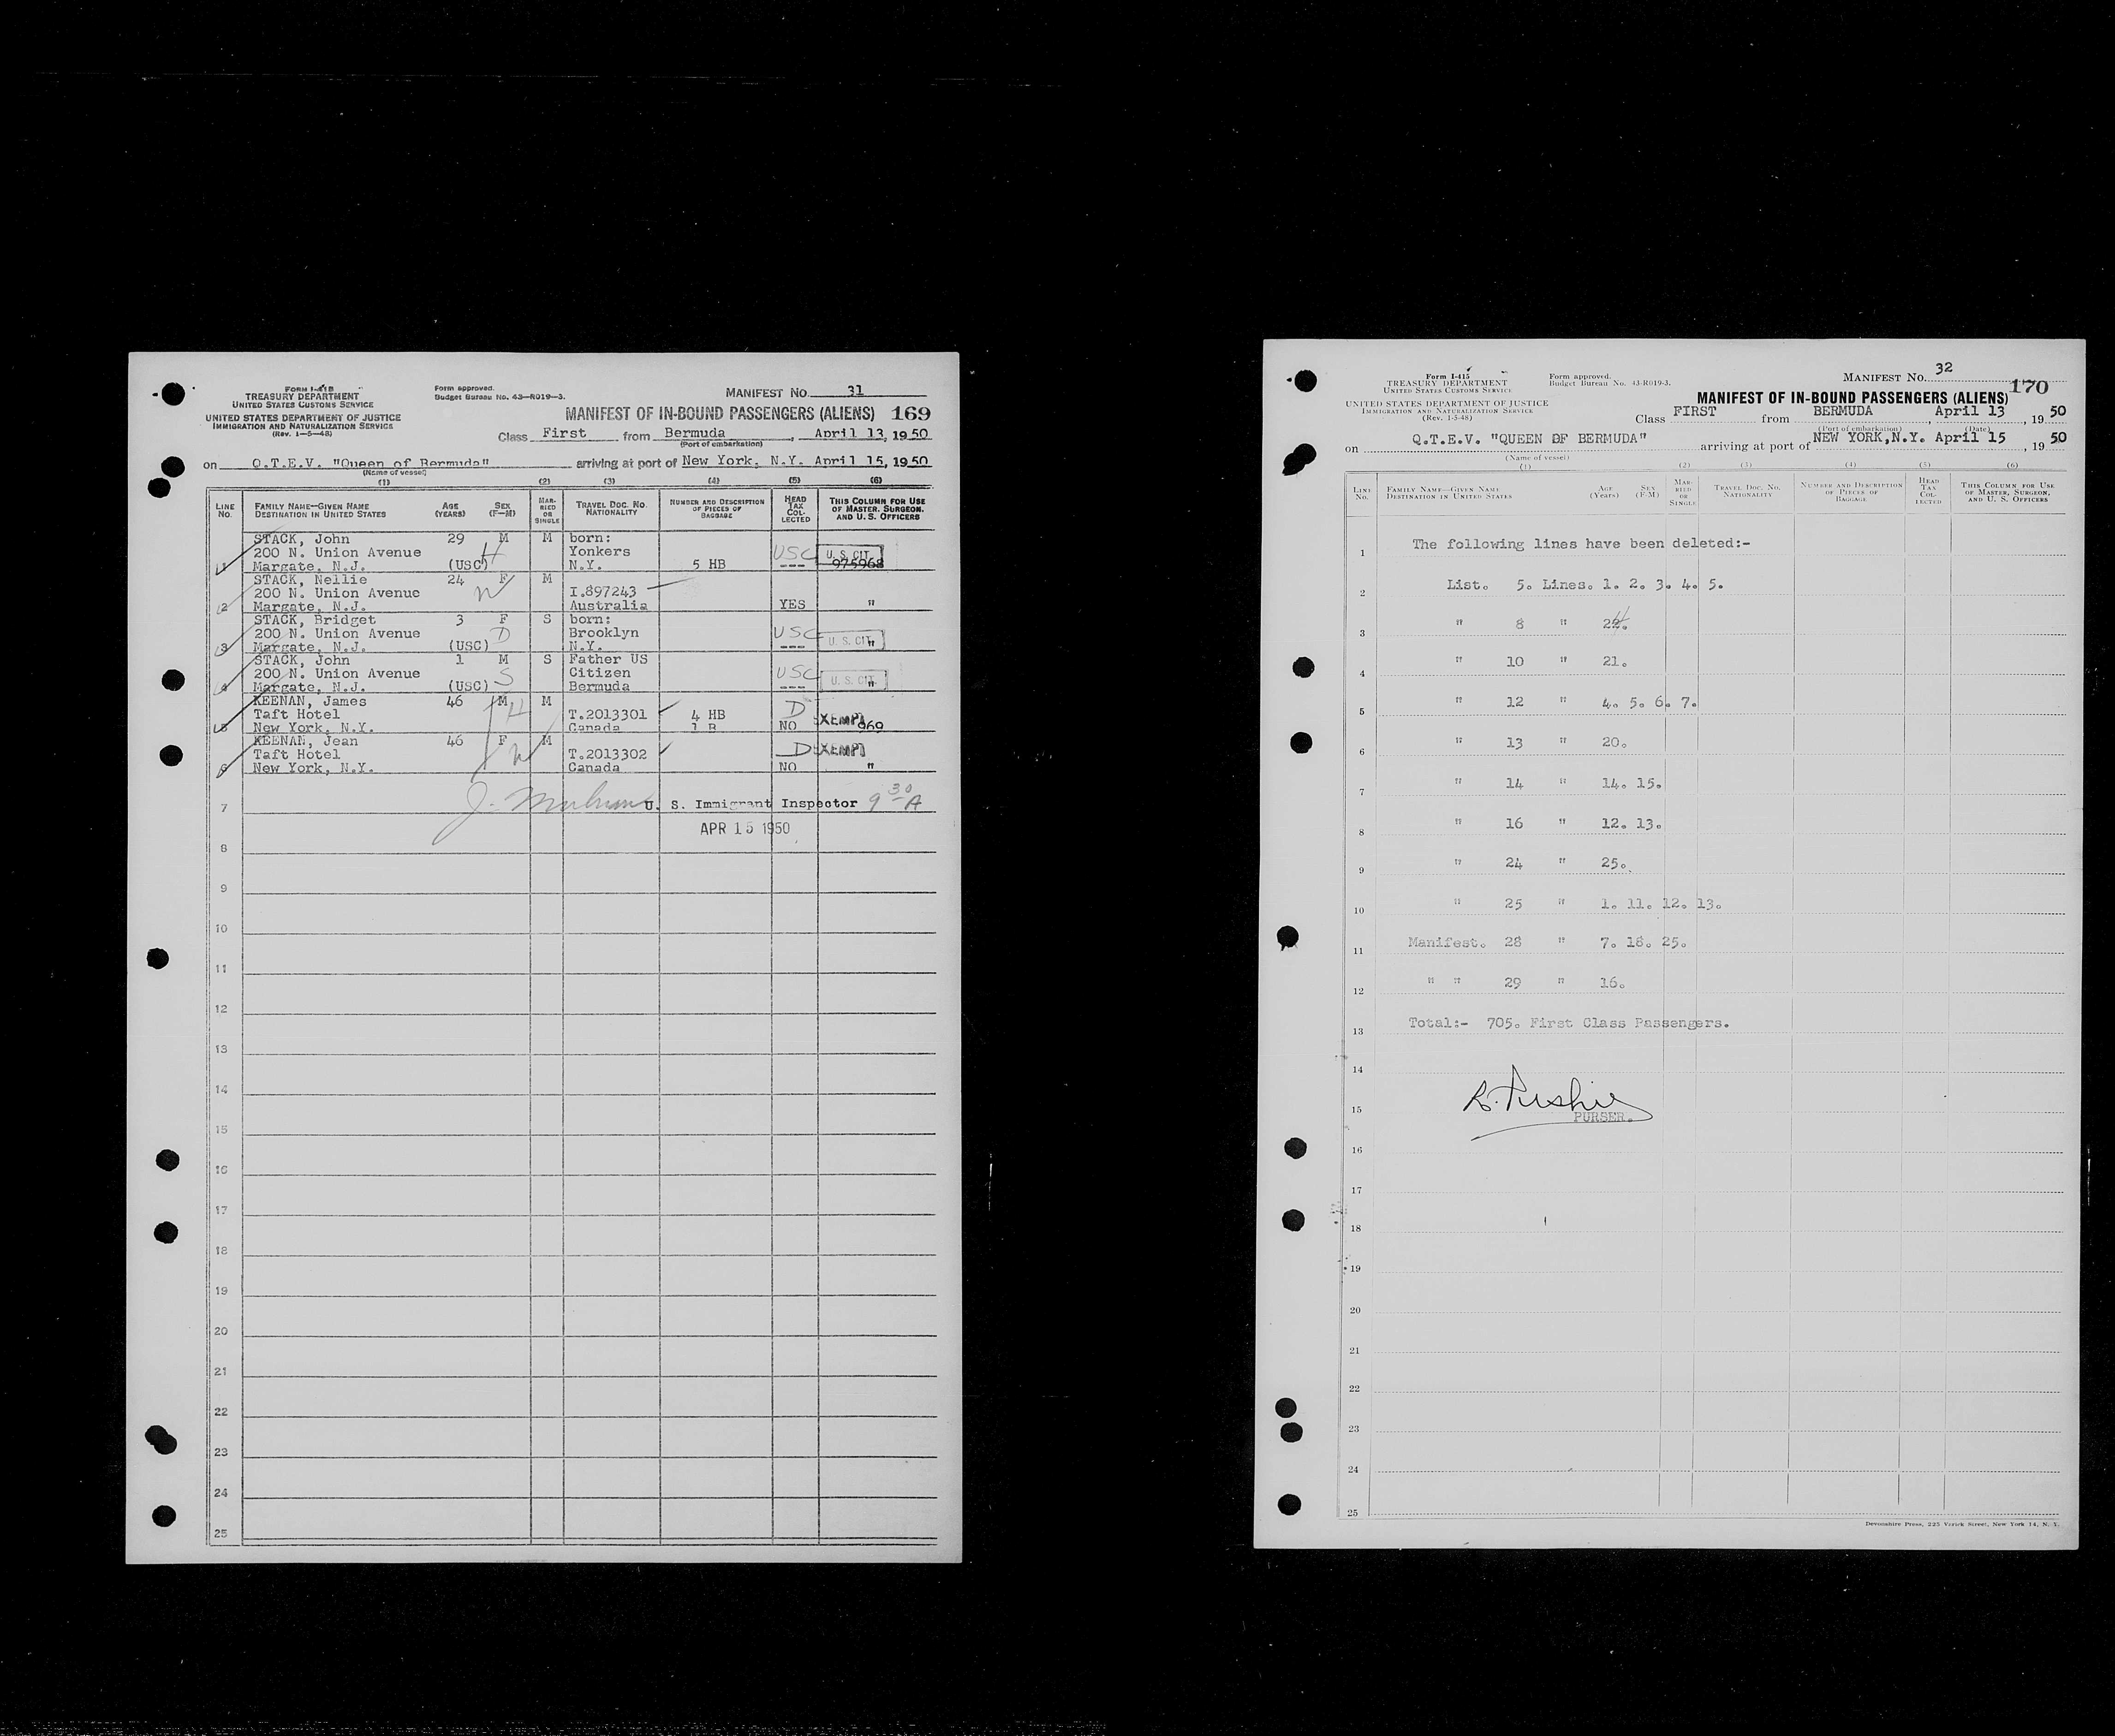 FORM I-415
TREASURY DEPARTMENT
UNITED STATES CUSTOMS SERVICE
UNITED STATES DEPARTMENT OF JUSTICE
IMMIGRATION AND NATURALIZATION SERVICE
(Rev. 1-5-48)
Form approved.
Budget Bureau No. 43-R019-3.
MANIFEST NO. 31
MANIFEST OF IN-BOUND PASSENGERS (ALIENS) 169
Class First from Bermuda, April 13, 1950
(Port of embarkation)
on Q.T.E.V. "Queen of Bermuda" arriving at port of New York, N.Y. April 15, 1950
(Name of vessel)
(1) (2) (3) (4) (5) (6)
LINE NO. FAMILY NAME-GIVEN NAME DESTINATION IN UNITED STATES AGE (YEARS) SEX (F-M) MARRIED OR SINGLE TRAVEL DOC. NO. NATIONALITY NUMBER AND DESCRIPTION OF PIECES OF BAGGAGE HEAD TAX COLLECTED THIS COLUMN FOR USE OF MASTER, SURGEON, AND U. S. OFFICERS
STACK, John 29 M M born:
200 N. Union Avenue H Yonkers USC U. S. CIT.
1 Margate, N.J. (USC) N.Y. 5 HB --- 975968
STACK, Nellie 24 F M
200 N. Union Avenue W I.897243
2 Margate, N.J. Australia YES "
STACK, Bridget 3 F S born:
200 N. Union Avenue D Brooklyn USC U. S. CIT.
3 Margate, N.J. (USC) N.Y. --- "
STACK, John 1 M S Father US
200 N. Union Avenue S Citizen USC U. S. CIT.
4 Margate, N.J. (USC) Bermuda --- "
KEENAN, James 46 M M
Taft Hotel H T.2013301 4 HB D EXEMPT
5 New York, N.Y. Canada 1 B NO 969
KEENAN, Jean 46 F M
Taft Hotel W T.2013302 D EXEMPT
6 New York, N.Y. Canada NO "
7 U. S. Immigrant Inspector 9 30 A
APR 15 1950
8
9
10
11
12
13
14
15
16
17
18
19
20
21
22
23
24
25
Form I-415
TREASURY DEPARTMENT
UNITED STATES CUSTOMS SERVICE
UNITED STATES DEPARTMENT OF JUSTICE
IMMIGRATION AND NATURALIZATION SERVICE
(Rev. 1-5-48)
Form approved.
Budget Bureau No. 43-R019-3.
MANIFEST NO. 32
170
MANIFEST OF IN-BOUND PASSENGERS (ALIENS)
Class FIRST from BERMUDA, April 13, 1950
(Port of embarkation) (Date)
on Q.T.E.V. "QUEEN OF BERMUDA" arriving at port of NEW YORK,N.Y. April 15, 1950
(Name of vessel)
(1) (2) (3) (4) (5) (6)
LINE NO. FAMILY NAME-GIVEN NAME DESTINATION IN UNITED STATES AGE (Years) SEX (F-M) MARRIED OR SINGLE TRAVEL DOC. NO. NATIONALITY NUMBER AND DESCRIPTION OF PIECES OF BAGGAGE HEAD TAX COLLECTED THIS COLUMN FOR USE OF MASTER, SURGEON, AND U. S. OFFICERS
1 The following lines have been deleted:-
2 List. 5. Lines. 1. 2. 3. 4. 5.
3 " 8 "
4 " 10 " 21.
5 " 12 " 4. 5. 6. 7.
6 " 13 " 20.
7 " 14 " 14. 15.
8 " 16 " 12. 13.
9 " 24 " 25.
10 " 25 " 1. 11. 12. 13.
11 Manifest. 28 " 7. 18. 25.
12 " " 29 " 16.
13 Total:- 705. First Class Passengers.
14
15 PURSER.
16
17
18
19
20
21
22
23
24
25
Devonshire Press, 225 Varick Street, New York 14, N. Y.